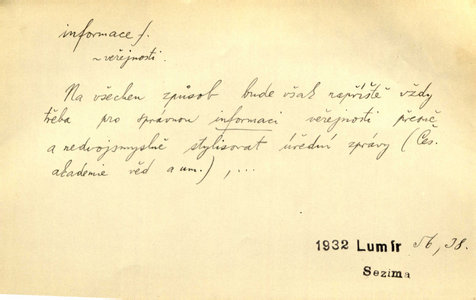 informace f.
~ veřejnosti.
Na všechen způsob bude však napříště vždy
třeba pro správnou informaci veřejnosti přesně
a nedvojsmyslně stylisovat úřední zprávy (Čes.
akademie věd a um.), ...
1932 Lumír 56, 38.
Sezima